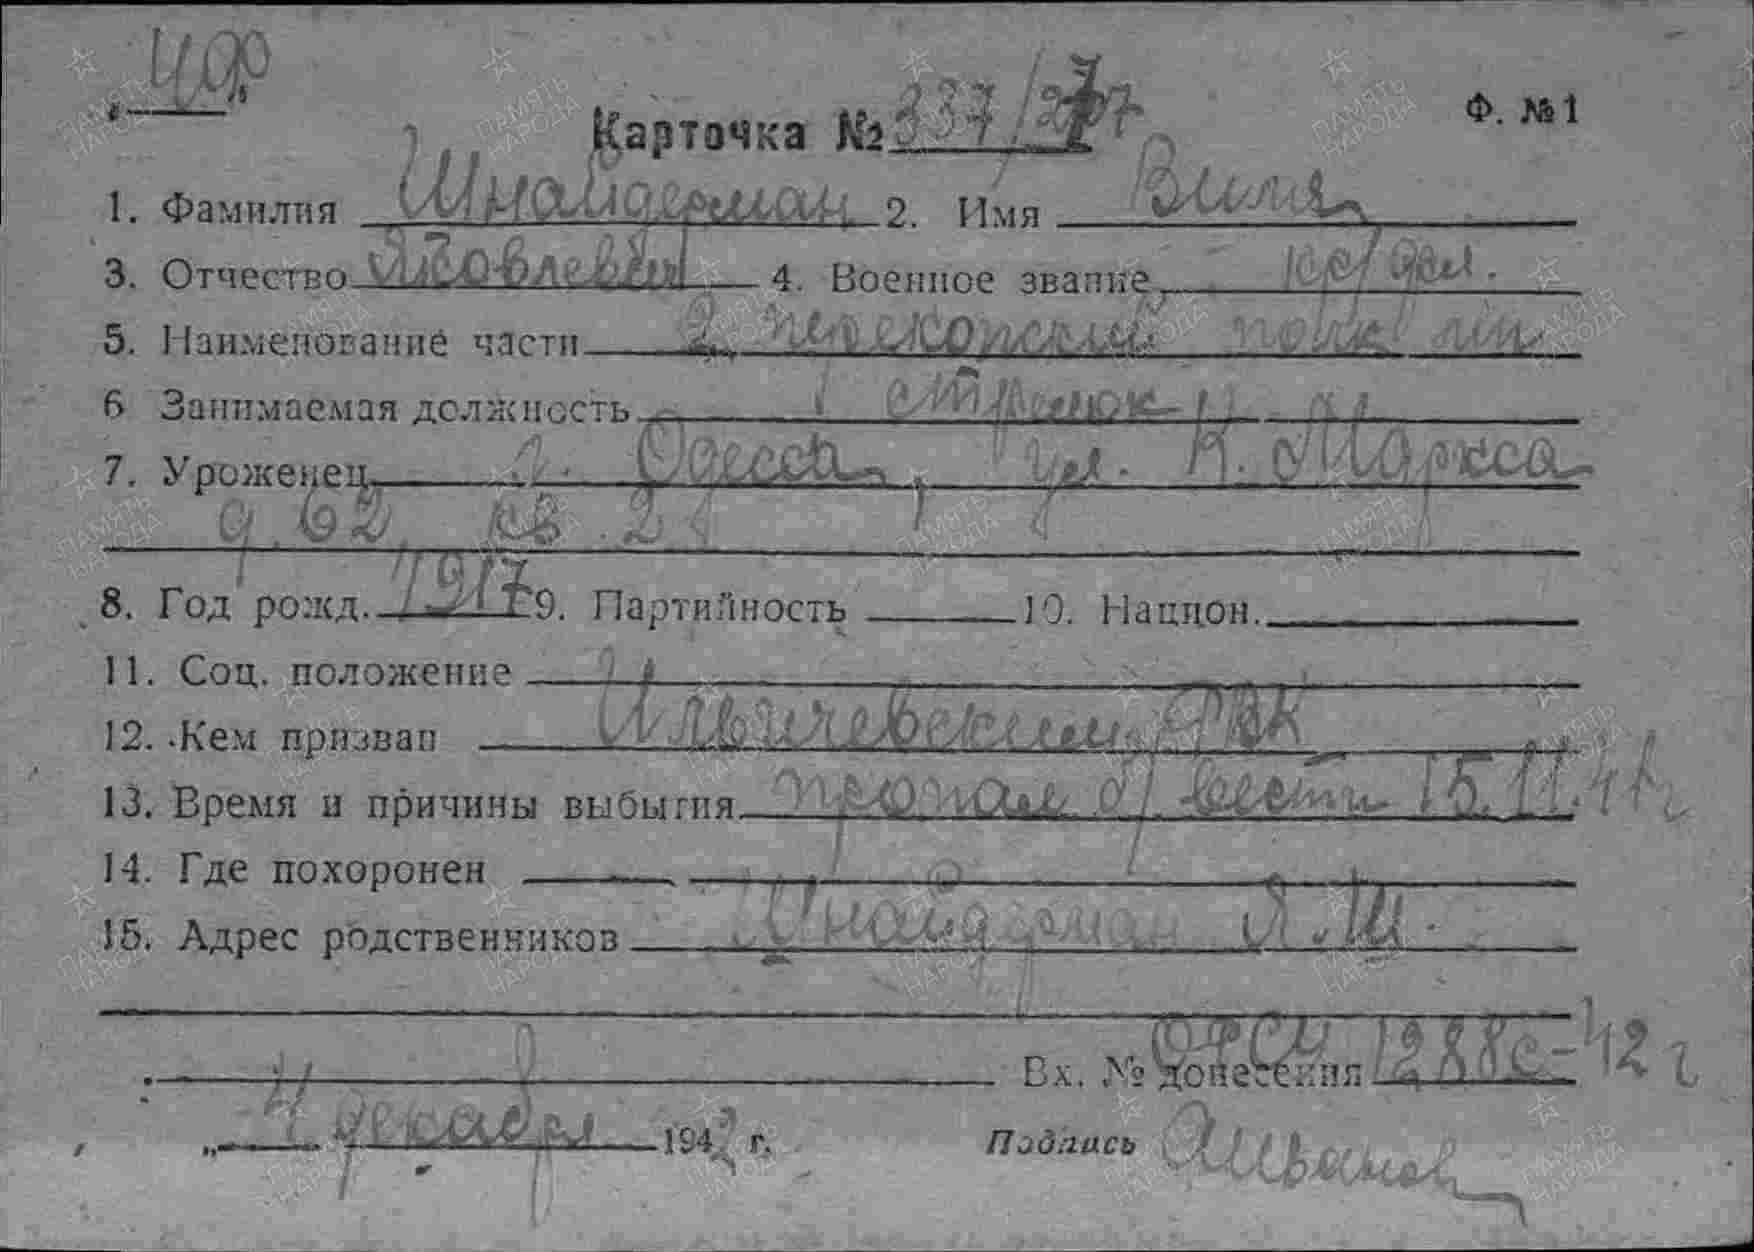 Ф. №1
Карточка № 337/
1. Фамилия Шнайдерман 2. Имя Виля
3. Отчество Яковлевич 4. Военное звание
5. Наименование части 2 перекопский полк мп
6 Занимаемая должность стрелок
7. Уроженец г. Одесса, ул. К. Маркса
д. 62 кв. 2
8. Год рожд. 1917 9. Партийность 10. Национ.
11. Соц. положение
12. Кем призван Ильичевским РВК
13. Время и причины выбытия пропал б/вести 15.11.41г
14. Где похоронен
15. Адрес родственников Шнайдерман Я.Ш.
Вх. № донесения 1288с-42г
„ 4 декабря 1942 г. Подпись
ПАМЯТЬ НАРОДА